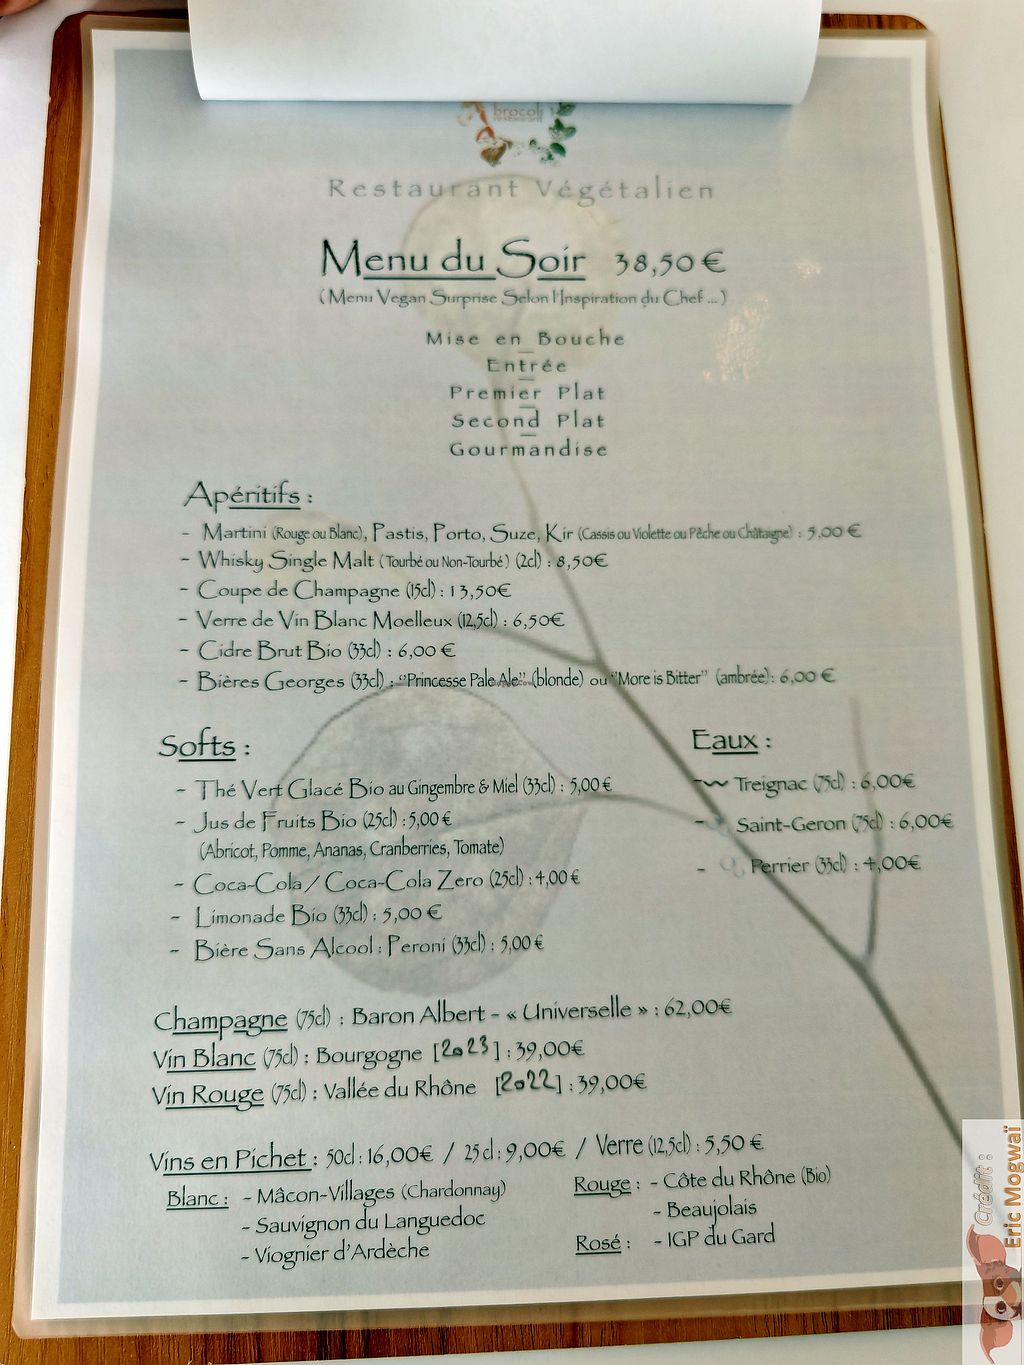 brocoli
restaurant
Restaurant Végétalien
Menu du Soir 38,50 €
( Menu Vegan Surprise Selon l'Inspiration du Chef ... )
Mise en Bouche
Entrée
Premier Plat
Second Plat
Gourmandise
Apéritifs :
- Martini (Rouge ou Blanc), Pastis, Porto, Suze, Kir (Cassis ou Violette ou Pêche ou Châtaigne) : 5,00 €
- Whisky Single Malt (Tourbé ou Non-Tourbé) (2cl) : 8,50€
- Coupe de Champagne (15cl) : 13,50€
- Verre de Vin Blanc Moelleux (12,5cl) : 6,50€
- Cidre Brut Bio (33cl) : 6,00 €
- Bières Georges (33cl) : "Princesse Pale Ale" (blonde) ou "More is Bitter" (ambrée): 6,00 €
Softs :
- Thé Vert Glacé Bio au Gingembre & Miel (33cl) : 5,00 €
- Jus de Fruits Bio (25cl) : 5,00 €
(Abricot, Pomme, Ananas, Cranberries, Tomate)
- Coca-Cola / Coca-Cola Zero (25cl) : 4,00 €
- Limonade Bio (33cl) : 5,00 €
- Bière Sans Alcool : Peroni (33cl) : 5,00 €
Eaux :
- Treignac (75cl) : 6,00€
- Saint-Geron (75cl) : 6,00€
- Perrier (33cl) : 4,00€
Champagne (75cl) : Baron Albert - « Universelle » : 62,00€
Vin Blanc (75cl) : Bourgogne [2023] : 39,00€
Vin Rouge (75cl) : Vallée du Rhône [2022] : 39,00€
Vins en Pichet : 50cl : 16,00€ / 25 cl : 9,00€ / Verre (12,5cl) : 5,50 €
Blanc : - Mâcon-Villages (Chardonnay)
- Sauvignon du Languedoc
- Viognier d'Ardèche
Rouge : - Côte du Rhône (Bio)
- Beaujolais
Rosé : - IGP du Gard
Crédit :
Eric Mogwaï